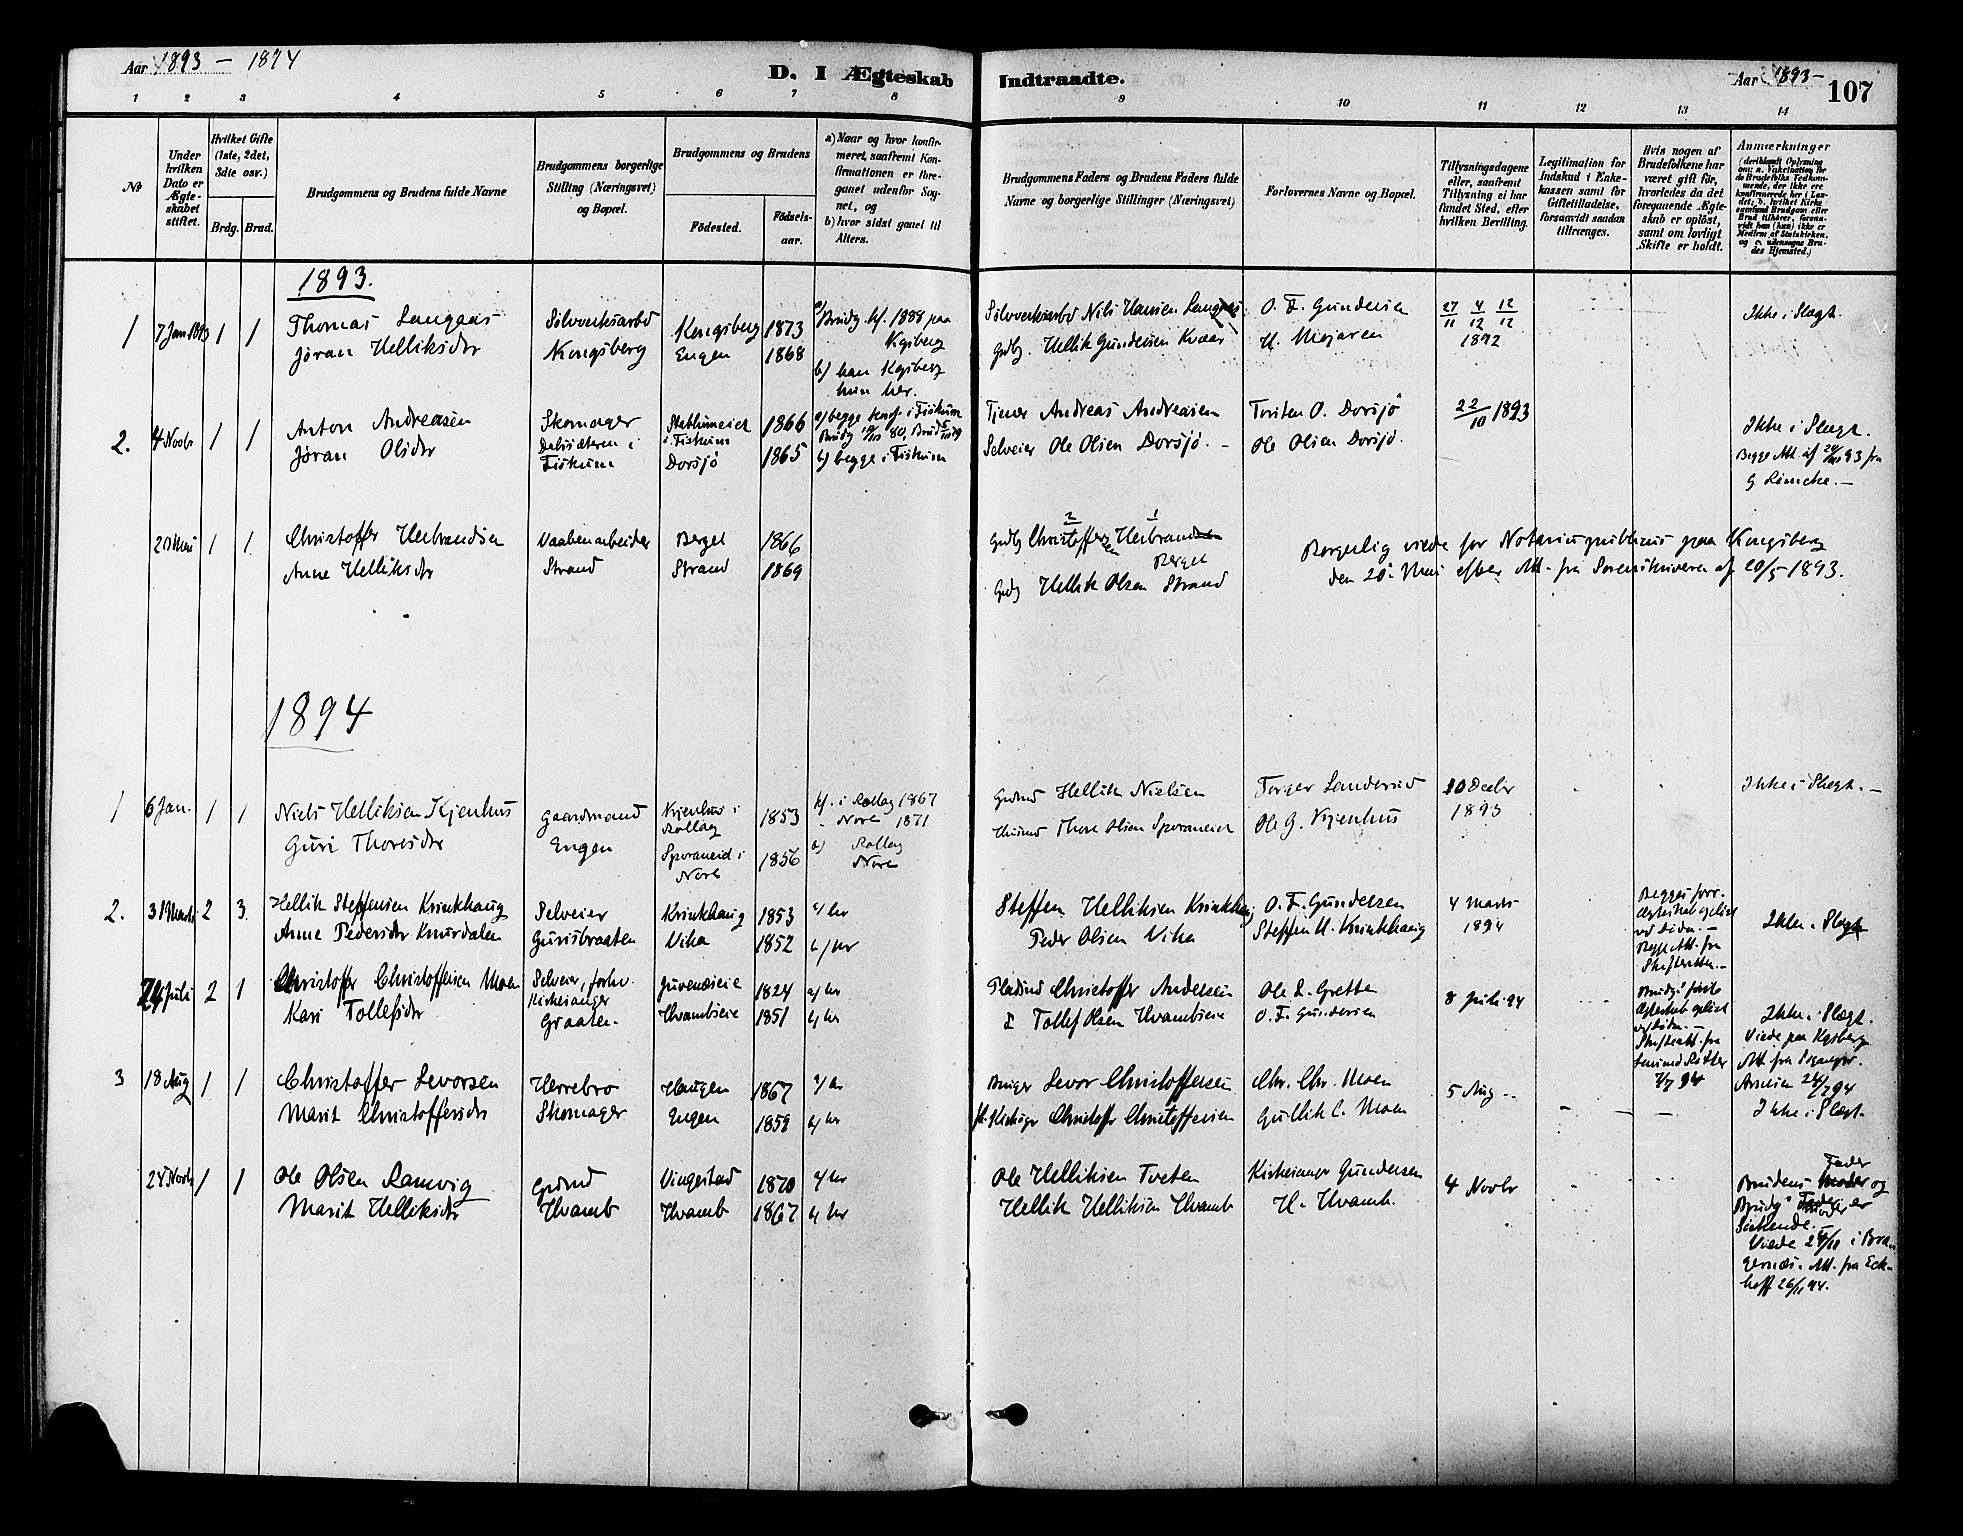 Aar 1893 – 1894
D. I Ægteskab Indtraadte.
Aar 1893 –
107
1 2 3 4 5 6 7 8 9 10 11 12 13 14
No
Under hvilken Dato er Ægteskabet stiftet.
Hvilket Gifte (1ste, 2det, 3die osv.)
Brdg. Brud.
Brudgommens og Brudens fulde Navne
Brudgommens borgerlige Stilling (Næringsvei) og Bopæl.
Brudgommens og Brudens
Födested.
Födselsaar.
a) Naar og hvor konfirmeret, saafremt Konfirmationen er foregaaet udenfor Sognet, og
b) hvor sidst gaaet til Alters.
Brudgommens Faders og Brudens Faders fulde Navne og borgerlige Stillinger (Næringsvei)
Forlovernes Navne og Bopæl.
Tillysningsdagene eller, saafremt Tillysning ei har fundet Sted, efter hvilken Bevilling.
Legitimation for Indskud i Enkekassen samt for Giftetilladelse, forsaavidt saadan tiltrænges.
Hvis nogen af Brudefolkene har været gift för, hvorledes da det foregaaende Ægteskab er oplöst, samt om lovligt Skifte er holdt.
Anmærkninger
1893.
1 7 Jan 1893 1 1
Thomas Langaas
Jøran Helliksdr
Sølvverksarbd
Kongsberg
Kongsberg 1873
Engen 1868
a/ Brudg. kf. 1888 paa
Kgsberg
b/ han Kgsberg
hun her.
Sølvverksarbd Nils Hansen Langaas
Gdbg. Hellik Gundersen Kvaar
O. F. Gundersen
H. Mejaren
27/11 4/12 12/12
1892
Ikke i Slægt.
2. 4 Novbr 1 1
Anton Andreasen
Jøran Olsdr
Skomager
Dalssæteren i
Fiskum
i Fiskum 1866
Dorsjø 1865
a/ begge konf. i Fiskum
b/ begge i Fiskum
Tjener Andreas Andreasen
Selveier Ole Olsen Dorsjø. –
Torsten O. Dorsjø
Ole Olsen Dorsjø.
22/10 1893
Ikke i Slægt.
Begge Att. af 93 fra
20 Mai 1 1
Christoffer Herbrandsen
Anne Helliksdr
Vaabenarbeider
Strand
Berget 1866
Strand 1869
Gdbg Christoffersen Herbrand
Berget
Gdbg Hellik Olsen Strand
Borgerlig viede for Notarius publicus paa Kongsberg
den 20. Mai efter Att. fra Sorenskriveren af 20/5 1893.
1894
1 6 Jan. 1 1
Niels Helliksen Kjenhus
Guri Thoresdr
Gaardmand
Engen
Kjenhus i
Rollag 1853
Sporaneid i
Nore 1856
kf. i Rollag 1867
" Nore 1871
a) Rollag
Nore
Grdmd Hellik Nielsen
Husmd Thore Olsen Sporaneiet
Torger Landerud
Ole G. Kjenhus
10 Decbr
1893
Ikke i Slægt. –
2. 31 Marts 2 3.
Hellik Steffensen Krinkhaug
Anne Pedersdr Knurdalen
Selveier
Gurisbraaten
Krinkhaug 1853
Vika 1852
a/ her
b/ her
Steffen Helliksen Krinkhaug
Peder Olsen Vika
O. F. Gundersen
Steffen H. Krinkhaug
4 Marts
1894
Begges forr.
Ægteskab opløst
ved Døden. –
Begge Att. fra
Skifteretten. –
Ikke i Slægt
24 Juli 2 1
Christoffer Christoffersen Moen
Kari Tollefsdr
Selveier, forhv.
Kirkesanger
Graaten.
Juveneieie 1824
Hvambseie 1851
a/ her
b/ her
Pladsmd Christoffer Andersen
D Tollef Olsen Hvambseie
Ole L. Grette
O. F. Gundersen
8 Juli 94
Brudg.s forr.
Ægteskab opløst
ved Døden. –
Skifteatt. fra
7/7 94
Ikke i Slægt.
Viede paa Kgsberg
Att. fra Sognepr.
Arnesen 24/7 94
3 18 Aug 1 1
Christoffer Sevorsen
Marit Christoffersdr
Herrebro
Skomager
Haugen 1867
Engen 1858
a/ her
b/ her
Bruger Sevor Christoffersen
fh. Kirkesgr Christoffr Christoffersen
Chr. Chr. Moen
Gullik C. Moen
5 Aug –
Ikke i Slægt.
24 Novb 1 1
Ole Olsen Ramvig
Marit Helliksdr
Grdmd
Hvamb
Vingestad 1870
Hvamb 1867
a/ her
b/ her
Ole Helliksen Tveten
Hellik Helliksen Hvamb
Kirkesanger Gundersen
H. Hvamb.
4 Novbr
Brudens Fader og
Brudg.s Moder er
Søskende. –
Viede 24/11 i Bra-
gernæs. Att. fra Eck-
hoff 26/11 94.